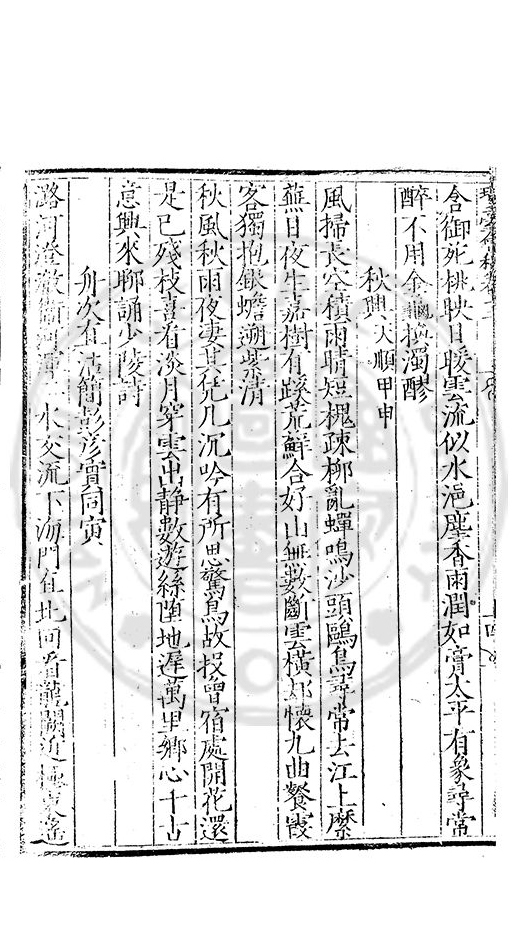 含御苑桃映日暖雲流似水浥塵香雨潤如膏太平有象尋常
醉不用金龜換濁醪
秋興大順甲申
風掃長空積雨晴短槐疎柳亂蟬鳴沙頭鷗鳥尋常去江上蘼
蕪日夜生嘉樹有蹊荒蘚合好山無數斷雲橫懷九曲餐霞
客獨抱銀蟾遡紫清
秋風秋雨夜淒其凭几沉吟有所思驚鳥故投曾宿處開花還
是已殘枝喜看淡月穿雲出靜數遊絲墮地遲萬里鄉心千古
意興來聊誦少陵詩
舟次直沽簡彭彥實同寅
潞河澄徹衞河渾二水交流下海門在北回看龍闕近極東遙